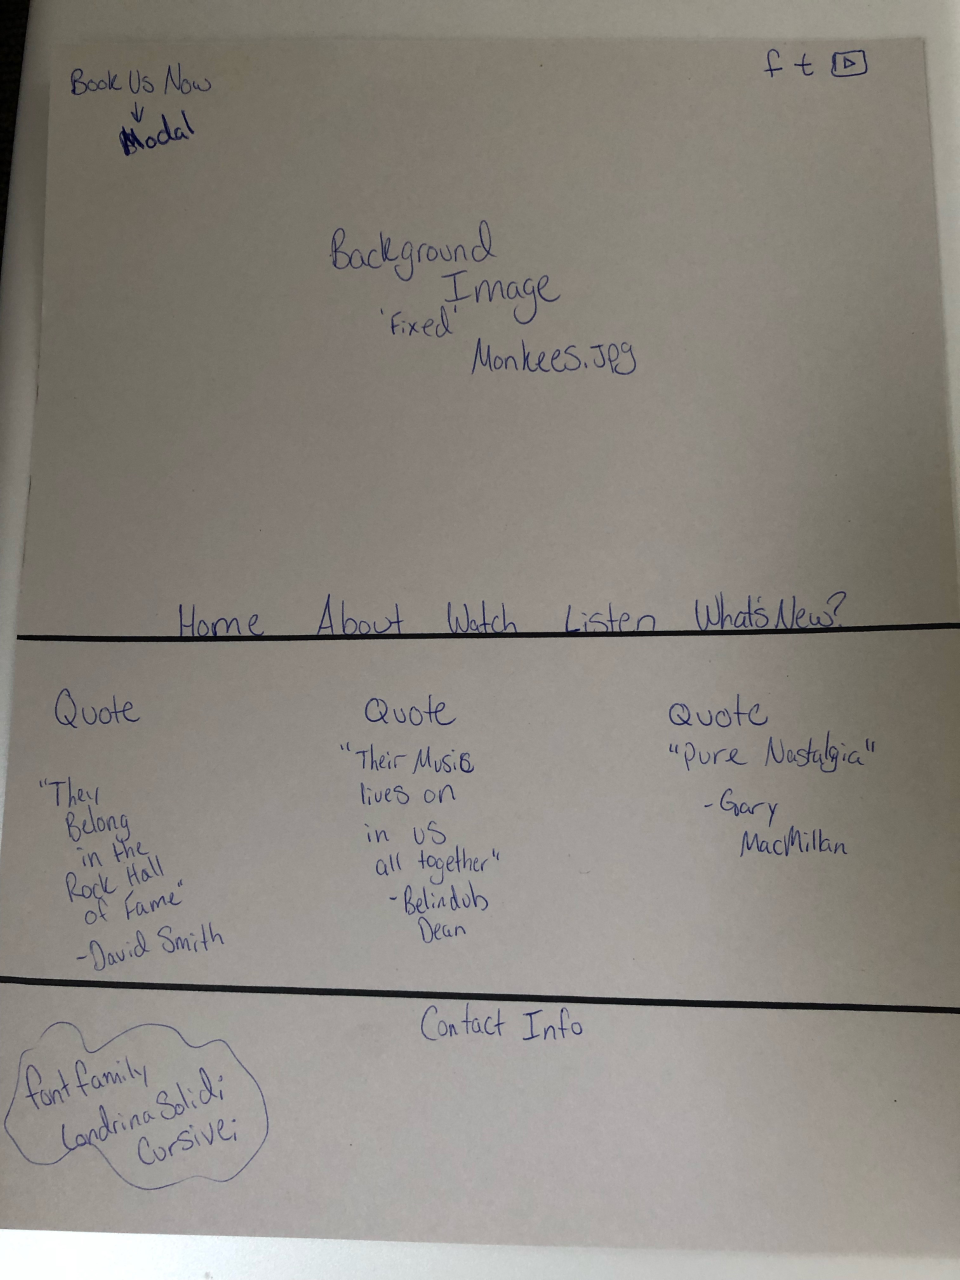 Book Us Now
Modal
f t
Background
Image
'Fixed'
Monkees.JPG
Home About Watch Listen What's New?
Quote
"They
Belong
in the
Rock Hall
of Fame"
-David Smith
Quote
"Their Music
lives on
in us
all together"
-Belindub
Dean
Quote
"Pure Nastalgia"
-Gary
MacMillan
Contact Info
font family
Londrina Solid;
Cursive;